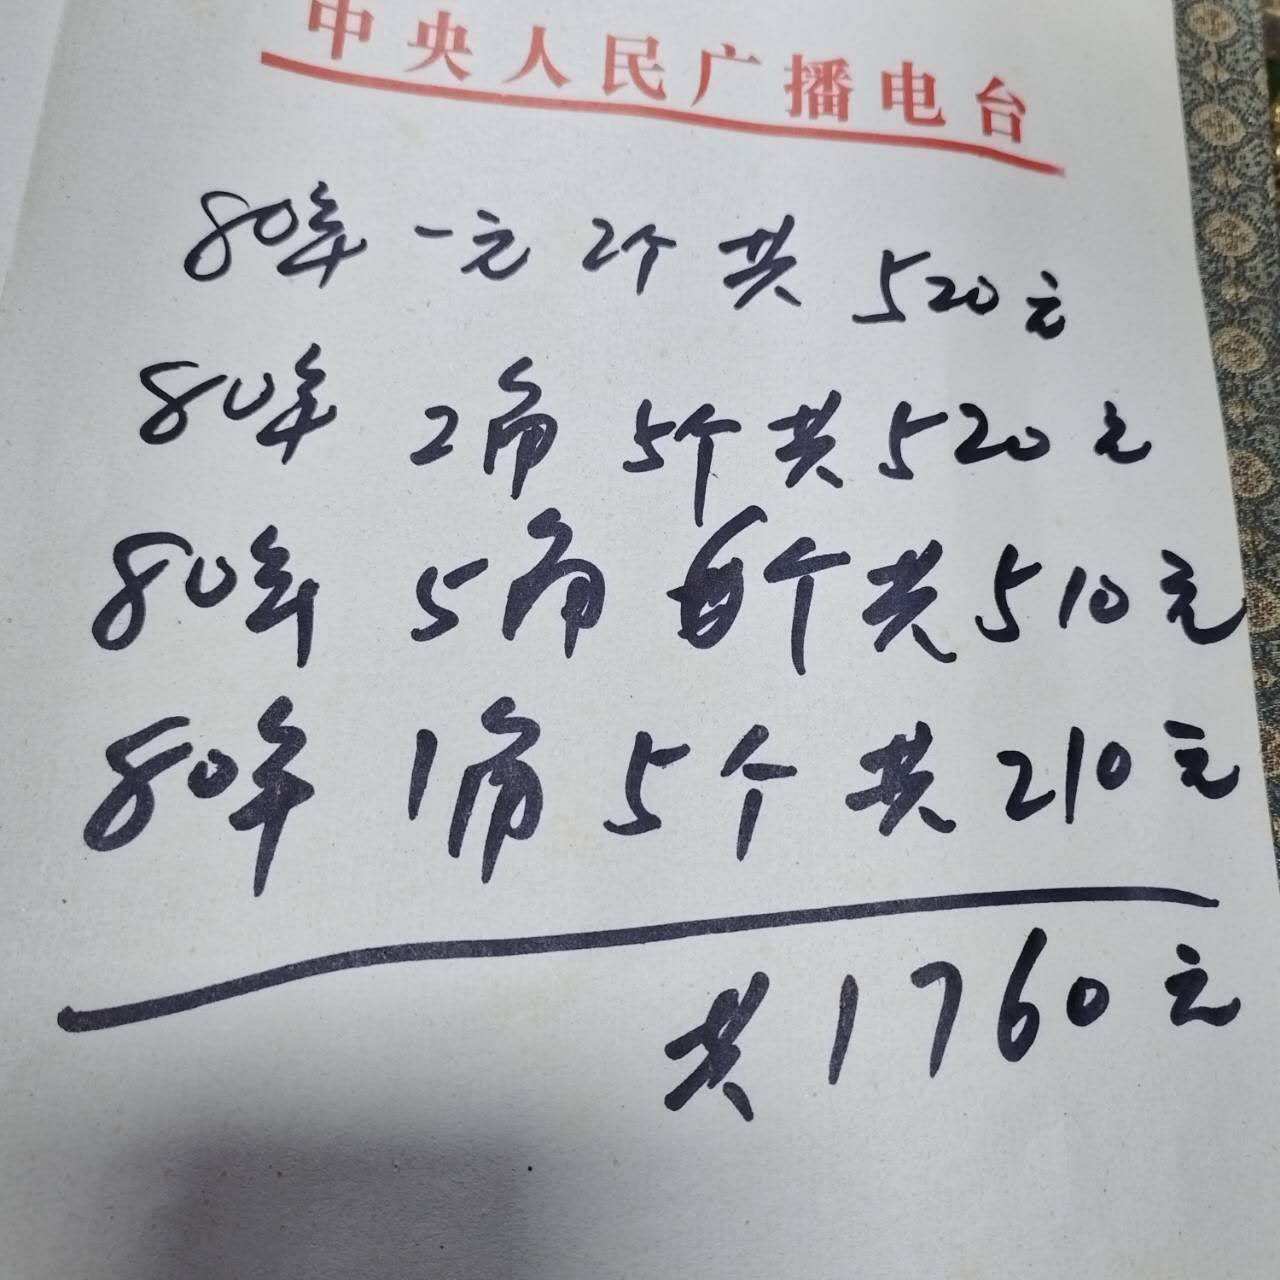 中央人民广播电台
80年 一元 2个 共 520元
80年 2角 5个共520元
80年 5角 6个共510元
80年 1角 5个共210元
共1760元